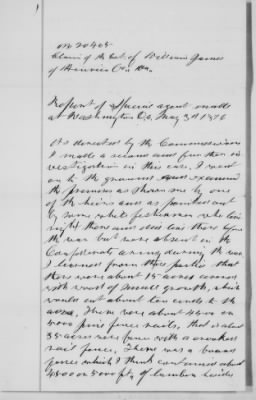 No 20405
Claim of the Est. of William James
of Henrico Co. Va.
Report of Special agent made
at Washington D.C. May 3d 1876
As directed by the Commissioners
I made a second and further in
vestigation in this case. I went
on to the grounds and examined
the premises as shown me by one
of the heirs and as pointed out
by some white fishermen who live
nigh there and did live there before
the war but were absent in the
Confederate army during the war
I learned from these parties that
there were about 15 acres covered
with wood of small growth, which
would cut about ten cords to the
acre. There were about 4500 or
5000 pine fence rails, that is about
35 acres were fenced with a
rail fence. There was a board
fence which I think contained about
4500 or 5000 ft. of lumber besides